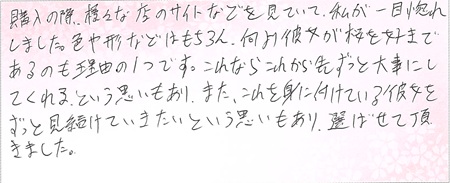 購入の際、様々な店のサイトなどを見ていて、私が一目惚れ
しました。色や形などはもちろん、何より彼女が桜を好きで
あるのも理由の1つです。これならこれから先ずっと大事にし
てくれる、という思いもあり、また、これを身に付けている彼女を
ずっと見続けていきたいという思いもあり、選ばせて頂
きました。